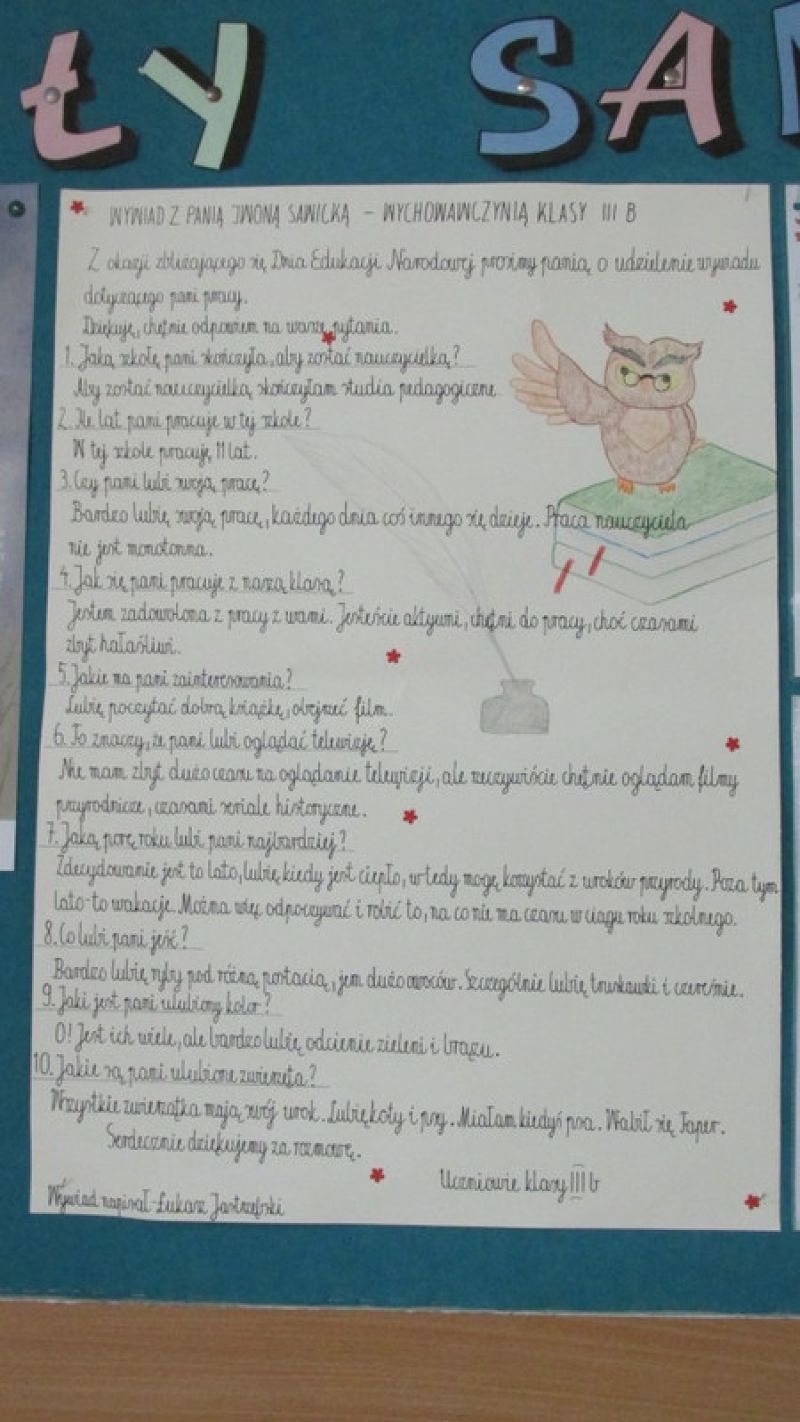 ŁY SA
WYWIAD Z PANIĄ IWONĄ SAWICKĄ – WYCHOWAWCZYNIĄ KLASY III B
Z okazji zbliżającego się Dnia Edukacji Narodowej prosimy panią o udzielenie wywiadu
dotyczącego pani pracy.
Dziękuję, chętnie odpowiem na wasze pytania.
1. Jaką szkołę pani skończyła, aby zostać nauczycielką?
Aby zostać nauczycielką skończyłam studia pedagogiczne
2. Ile lat pani pracuje w tej szkole?
W tej szkole pracuję 11 lat.
3. Czy pani lubi swoją pracę?
Bardzo lubię swoją pracę, każdego dnia coś innego się dzieje. Praca nauczyciela
nie jest monotonna.
4. Jak się pani pracuje z naszą klasą?
Jestem zadowolona z pracy z wami. Jesteście aktywni, chętni do pracy, choć czasami
zbyt hałaśliwi.
5. Jakie ma pani zainteresowania?
Lubię poczytać dobrą książkę, obejrzeć film.
6. To znaczy, że pani lubi oglądać telewizję?
Nie mam zbyt dużo czasu na oglądanie telewizji, ale rzeczywiście chętnie oglądam filmy
przyrodnicze, czasami seriale historyczne.
7. Jaką porę roku lubi pani najbardziej?
Zdecydowanie jest to lato, lubię kiedy jest ciepło, wtedy mogę korzystać z uroków przyrody. Poza tym
lato-to wakacje. Można więc odpoczywać i robić to, na co nie ma czasu w ciągu roku szkolnego.
8. Co lubi pani jeść?
Bardzo lubię ryby pod różną postacią, jem dużo owoców. Szczególnie lubię truskawki i czereśnie.
9. Jaki jest pani ulubiony kolor?
O! Jest ich wiele, ale bardzo lubię odcienie zieleni i brązu.
10. Jakie są pani ulubione zwierzęta?
Wszystkie zwierzątka mają swój urok. Lubię koty i psy. Miałam kiedyś psa. Wabił się Japer.
Serdecznie dziękujemy za rozmowę.
Uczniowie klasy III b
Wywiad napisał-Łukasz Jastrzębski